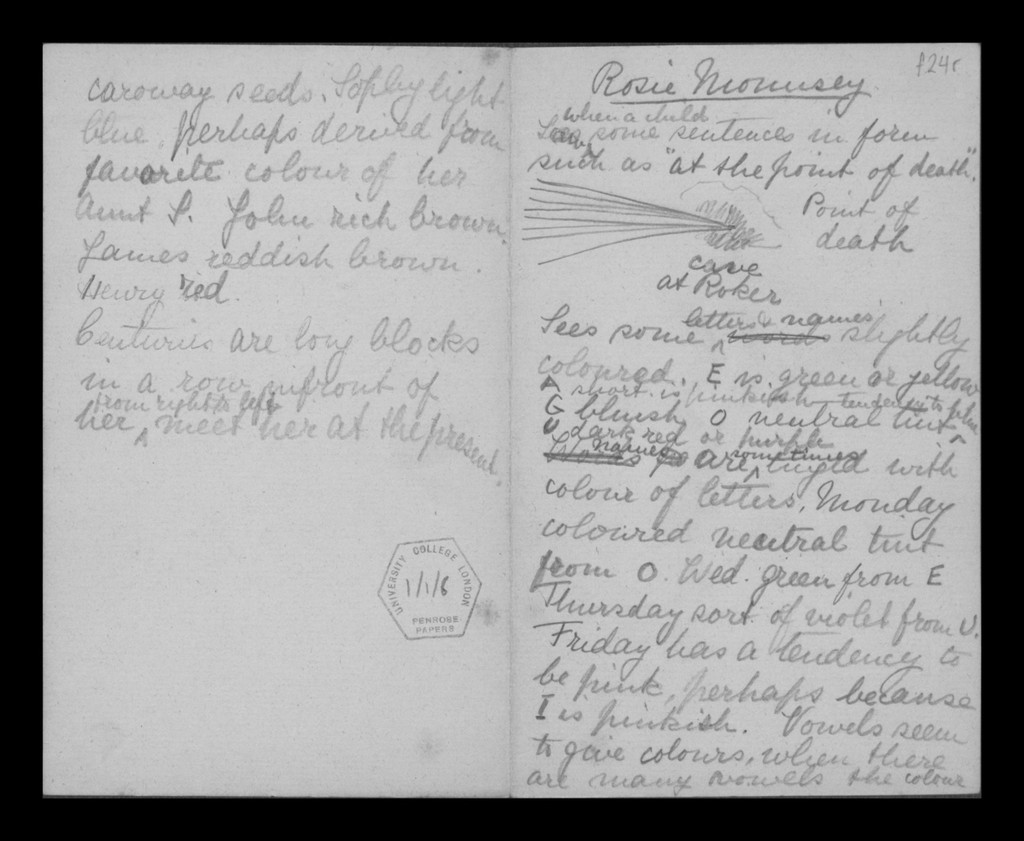 caroway seeds. Sophy light
blue, perhaps derived from
favorite colour of her
Aunt S. John rich brown.
James reddish brown.
Henry red.
Centuries are long blocks
in a row infront of
from right to left
her meet her at the present.
UNIVERSITY COLLEGE LONDON
1/1/6
PENROSE
PAPERS
f24r
Rosie Mounsey
when a child
some sentences in form
such as "at the point of death".
Point of
death
cave
at Roker
letters & names
Sees some words slightly
coloured. E is green or yellow
A short is pinkish tendency to
G bluish O neutral tint
U dark red or purple
names sometimes
Words are tinged with
colour of letters, Monday
coloured neutral tint
from O. Wed. green from E
Thursday sort of violet from U.
Friday has a tendency to
be pink, perhaps because
I is pinkish. Vowels seem
to give colours, when there
are many vowels the colour